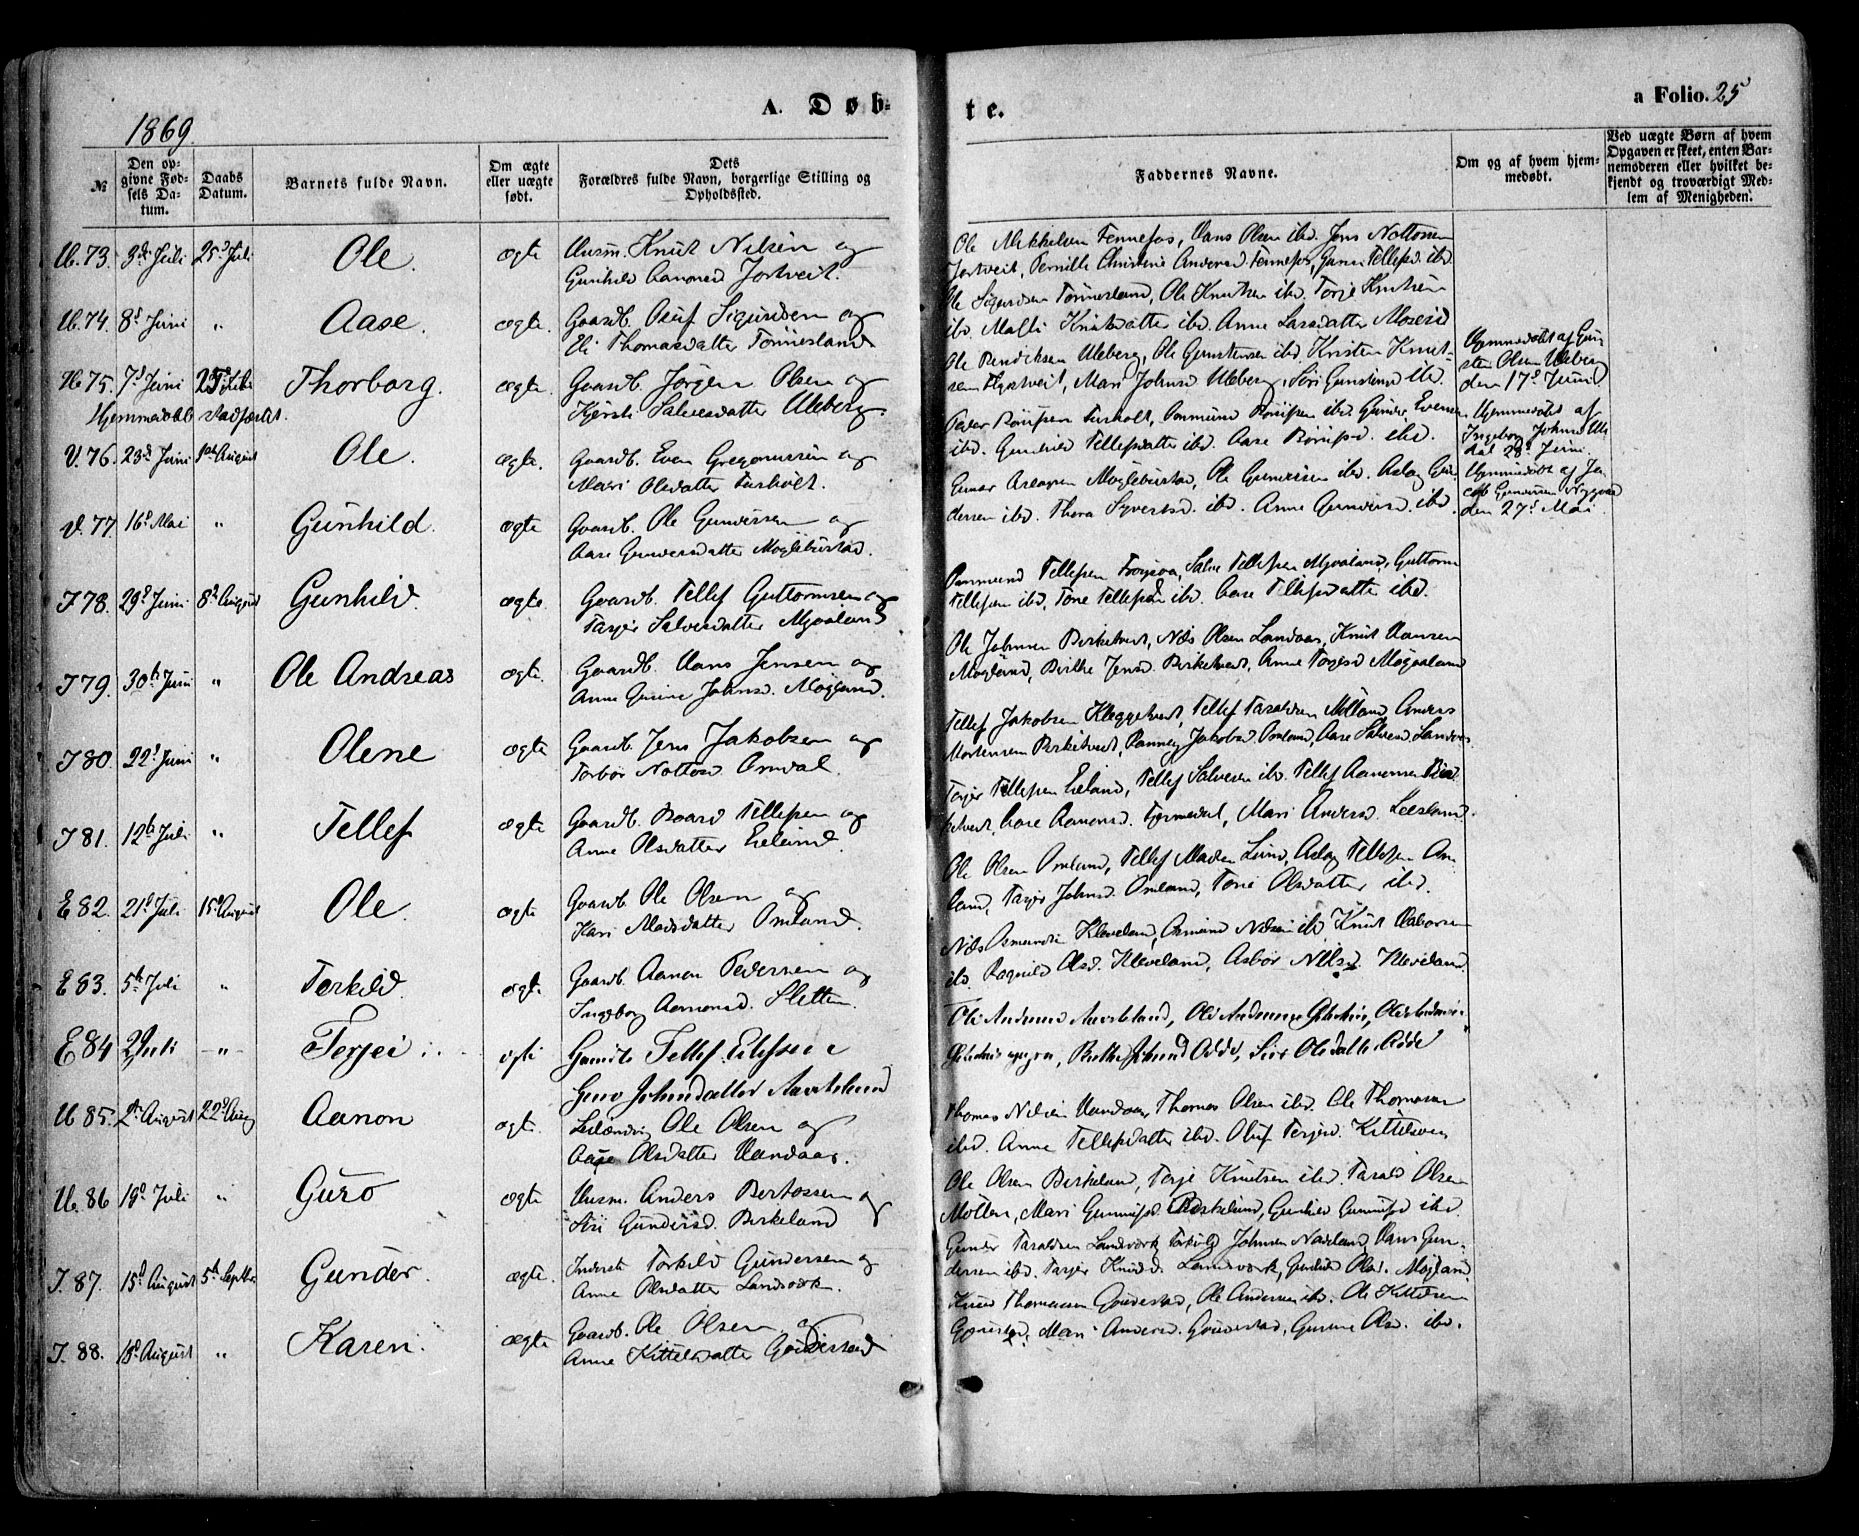 A. Døb-
te.
a Folio. 25
1869.
№
Den opgivne Fødsels Datum.
Daabs Datum.
Barnets fulde Navn.
Om ægte eller uægte født.
Dets Forældres fulde Navn, borgerlige Stilling og Opholdssted.
Faddernes Navne.
Om og af hvem hjemmedøbt.
Ved uægte Børn af hvem Opgaven er skeet, enten Barnemoderen eller hvilket bekjendt og troværdigt Medlem af Menigheden.
U. 73. 3d Juli 25d Juli Ole. ægte Huusm. Knut Nilsen og
Gunhild Aanonsd Jortveit.
Ole Mikkelsen Fennefos, Hans Olsen ibd. Jens Nottosen
Jortveit, Pernille Christine Andersd. Fennefos, Gunni Tellefsd. ibd.
U. 74. 8d Juni " Aase. ægte. Gaardb. Oluf Sigurdsen og
Eli Thomasdatter Tønnesland
Ole Sigurdsen Tønnesland, Ole Knutsen ibd. Torje Knutsen
ibd. Malli Knutsdatter ibd. Anne Larsdatter Moseid
U. 75. 7d Juni 25d Juli Thorborg. ægte. Gaardb. Jørgen Olsen og
Hjemmedøbt stadfæstet.
Kjersti Salvesdatter Uleberg.
Ole Bendiksen Uleberg, Ole Gunstensen ibd. Kristen Knut-
sen Hjortveit, Mari Johnsd Uleberg, Siri Gunstensd ibd.
Hjemmedøbt af Gun-
sten Olsen Uleberg
den 17d Juni
V. 76. 23d Juni 1ste August Ole. ægte. Gaardb. Even Gregoriussen og
Mari Olsdatter Furholt.
ibd. Gunhild Tellefsdatter ibd. Aase Bønifsd. ibd.
Hjemmedøbt af
Ingeborg
28d Juni
V. 77 16d Mai " Gunhild. ægte Gaardb. Ole Gundersen og
Aase Gundersdatter Møglebustad.
Gunder Aslagsen Møglebustad, Ole Gundersen ibd. Aslag Gun-
dersen ibd. Thora Syvertsd. ibd. Anne Gundersd. ibd.
Hjemmedøbt af Ja-
cob Gundersen
den 27d Mai
I 78. 29d Juni 8d August Gunhild. ægte. Gaardb. Tellef Guttormsen og
Tarjer Salvesdatter Mjaaland
Tellefsen Frøysaa, Salve Tellefsen Mjaaland, Guttorm
Tellefsen ibd, Tone Tellefsd ibd. Aase Tellefsdatter ibd.
I 79. 30te Juni " Ole Andreas ægte. Gaardb. Hans Jensen og
Anne Gurine Johnsd. Møgland.
Ole Johnsen Birketveit, Nils Olsen Landaas, Knut Hansen
Møgland, Birthe Jensd. Birketveit, Anne Torjesd Møgland
I 80. 22d Juni " Olene ægte Gaardb. Jens Jakobsen og
Torbor Nottosd Omdal.
Tellef Jakobsen Kleggetveit, Tellef Taraldsen Mølland Anders
Mortensen Birketveit, Ranneg Jakobsd Omland, Aase Salvesd Landaas
I 81. 12te Juli " Tellef ægte Gaardb. Baard Tellefsen og
Anne Olsdatter Eieland.
Tarjer Tellefsen Eieland, Tellef Salvesen ibd. Tellef Aanonsen Bir-
ketveit, Aase Aanonsd. Tjermedal, Mari Andersd. Leesland.
E 82. 21d Juli 15d August Ole. ægte Gaardb. Ole Olsen og
Kari Madsdatter Omland.
Ole Olsen Omland, Tellef Madsen Lund, Aslag Tellefsen Om-
land, Tarjer Johnsd. Omland, Tone Olsdatter ibd.
E 83. 5te Juli " Torkild. ægte. Gaardb. Aanon Pedersen og
Ingeborg Aanonsd. Sletten.
Nils Osmundsen Kleveland, Osmund Nilsen ibd Knut
ibd. Ragnild Olsd. Kleveland, Asbør Nilsd. Kleveland.
E 84 2 Juli - " - Terjei ægte Tellef Eilefsen &
Guro Johnsdatter
Olsdatter Odde
U 85. 2den August 22d Aug Aanon ægte. Leilænding Ole Olsen og
Aase Olsdatter Haandaas.
Thomas Nilsen Haandaas, Thomas Olsen ibd. Ole Thomassen
ibd. Anne Tellefsdatter ibd. Oluf Terjesd. Kittelsen
U. 86 19d Juli " Guro ægte Huusm. Anders Bertossen og
Siri Gundersd. Birkeland
Ole Olsen Birkeland, Terje Knutsen ibd. Tarald Olsen
Møllen, Mari Gunnufsd. Birkelund, Gunhild Gunnufsd ibd.
I. 87. 15d August 5te Septbr Gunder. ægte. Inderst Torkild Gundersen og
Anne Olsdatter Landsværk.
Gunder Taraldsen Landsværk Torkild Johnsen Naveland, Hans Gun-
dersen ibd. Tarjer Knudsd. Landsværk, Gunhild Olsd. Møgland.
I. 88. 18d August " Karen. ægte Gaardb. Ole Olsen og
Anne Kittelsdatter
Knud Thomassen Ole Andersen ibd. Ole Kittelsen
Mari Andersd. Gurine Olsd. ibd.